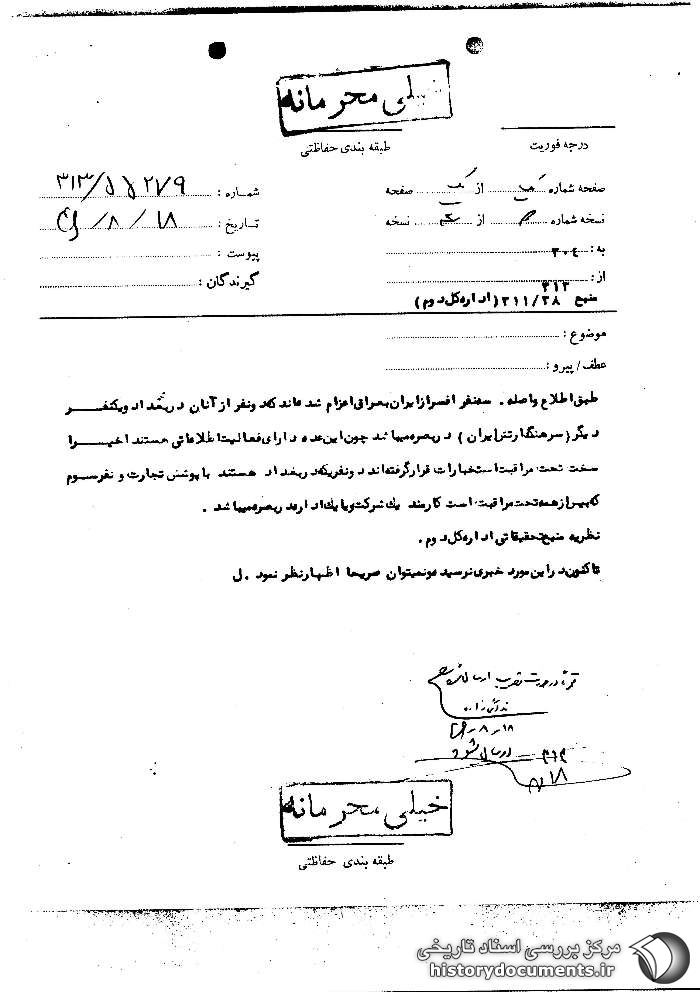 خیلی محرمانه
طبقه بندی حفاظتی
درجه فوریت
صفحه شماره یک از یک صفحه
شماره :
نسخه شماره از نسخه
تاریخ : ۱۸ / ۸ /
به : ۳۰۴
پیوست :
از : ۳۱۲
گیرندگان :
منبع ۲۱۱/۲۸ (اداره کل دوم)
موضوع :
عطف / پیرو :
طبق اطلاع واصله . سه نفر افسر از ایران بعراق اعزام شده اند که دو نفر از آنان در بغداد و یکنفر
دیگر (سرهنگ ارتش ایران ) در بصره میباشد چون این عده دارای فعالیت اطلاعاتی هستند اخیرا
سخت تحت مراقبت استخبارات قرار گرفته اند دو نفریکه در بغداد هستند با پوشش تجارت و نفر سوم
که بیش از همه تحت مراقبت است کارمند یك شرکت و یا یك اداره در بصره میباشد .
نظریه منبع تحقیقاتی اداره کل دوم .
تاکنون در این مورد خبری نرسیده و نمیتوان صریحا اظهار نظر نمود . ل
۱۸ - ۸ -
ارسال شود
خیلی محرمانه
طبقه بندی حفاظتی
مرکز بررسی اسناد تاریخی
historydocuments.ir